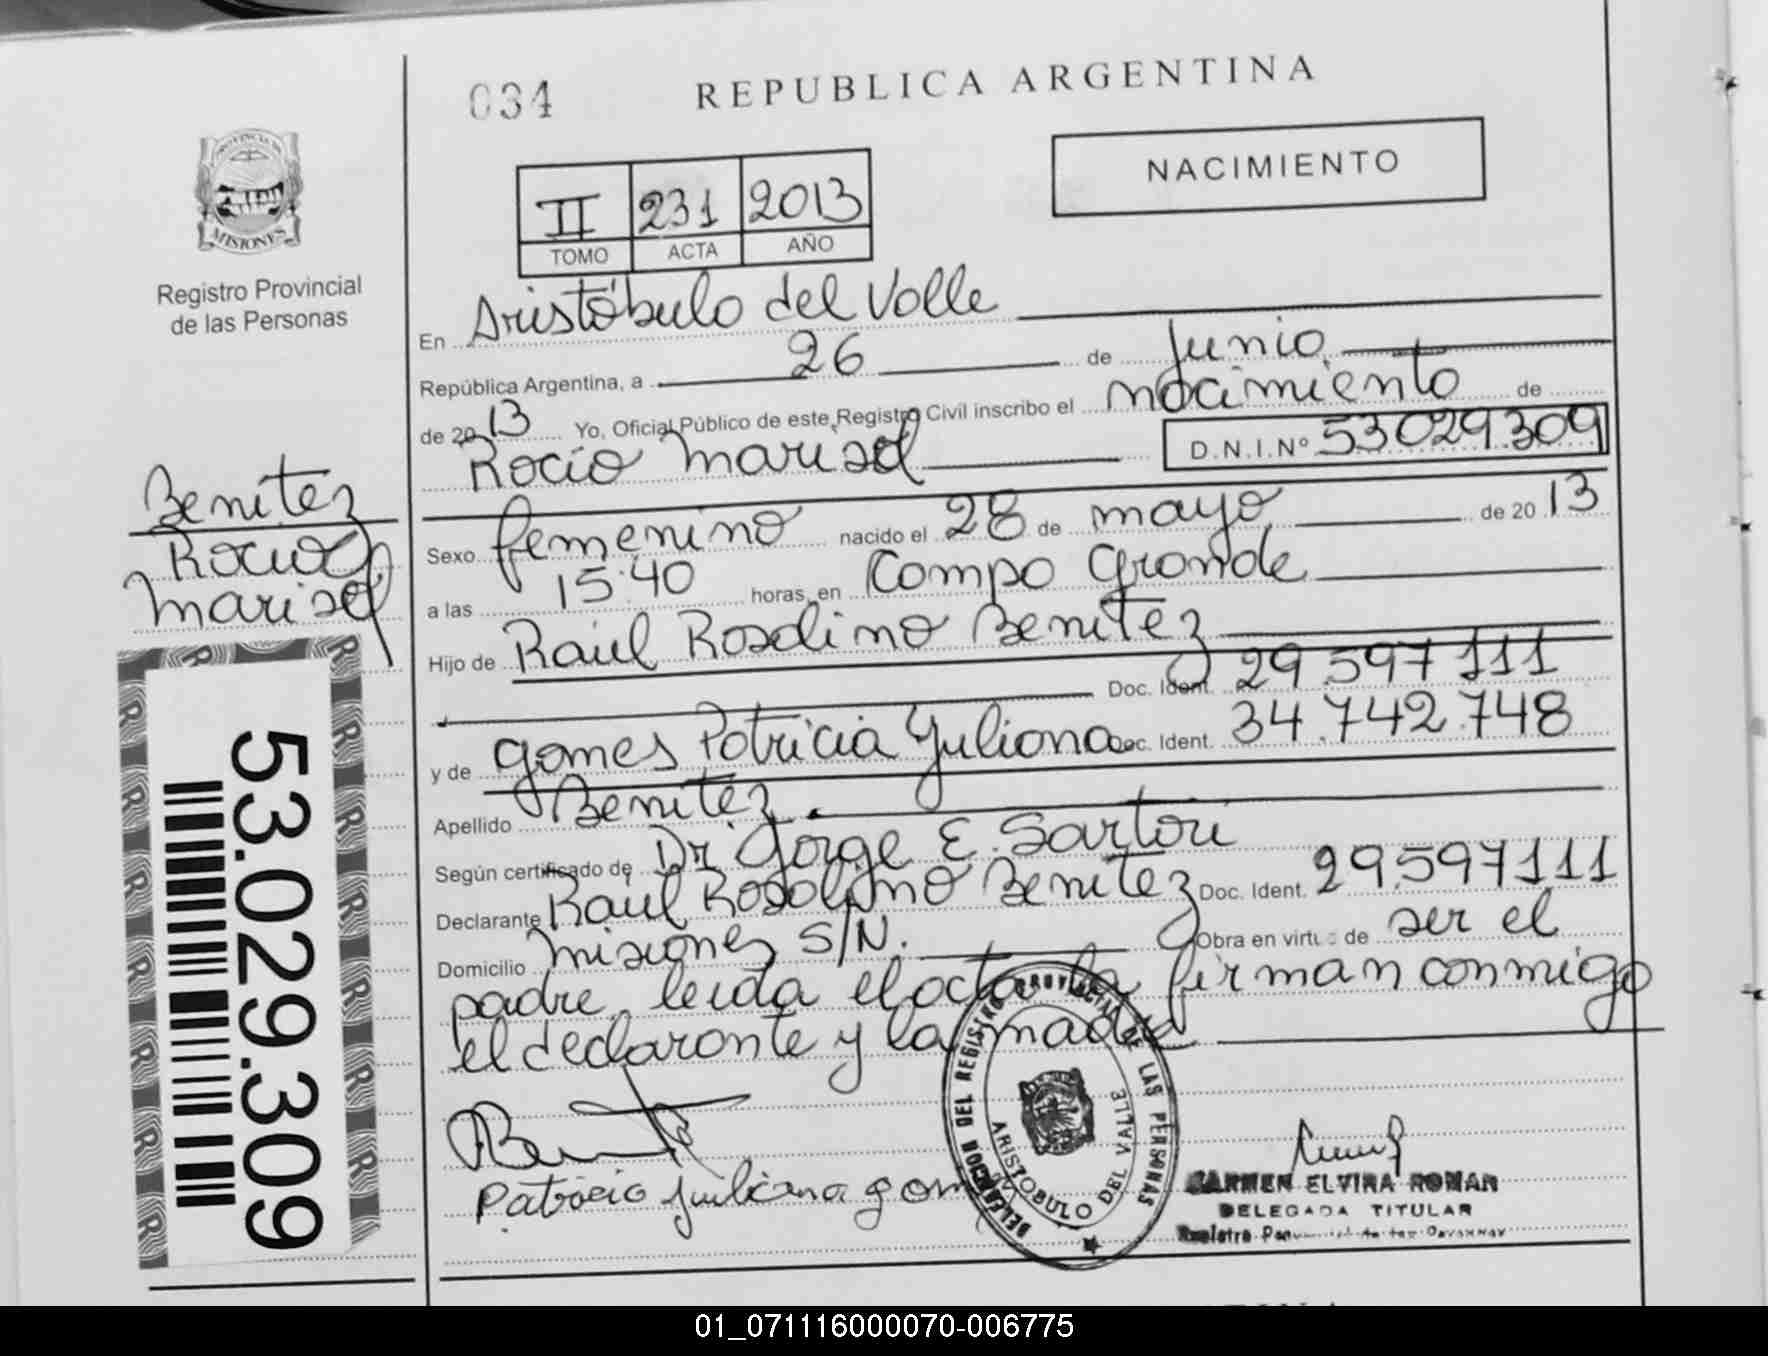 034
REPUBLICA ARGENTINA
NACIMIENTO
II 231 2013
TOMO ACTA AÑO
PROVINCIA DE
MISIONES
Registro Provincial
de las Personas
Benitez
Rocio
Marisol
53.029.309
En Aristóbulo del Valle
República Argentina, a 26 de Junio
de 2013 Yo, Oficial Público de este Registro Civil inscribo el nacimiento de
Rocio Marisol D.N.I.Nº 53029309
Sexo femenino nacido el 28 de mayo de 2013
a las 15:40 horas, en Campo Grande
Hijo de Raúl Rosalino Benitez
Doc. Ident. 29.597111
y de Gomes Patricia Yuliana Doc. Ident. 34.742.748
Apellido Benitez.
Según certificado de Dr Jorge E. Sartori
Declarante Raúl Rosalino Benitez Doc. Ident. 29.597111
Domicilio Misiones S/N. Obra en virtud de ser el
padre, leida el acta la firman conmigo
el declarante y la madre
Patricia Juliana gom
DELEGACION DEL REGISTRO PROVINCIAL DE LAS PERSONAS
ARISTOBULO DEL VALLE
CARMEN ELVIRA ROMAN
DELEGADA TITULAR
01_071116000070-006775